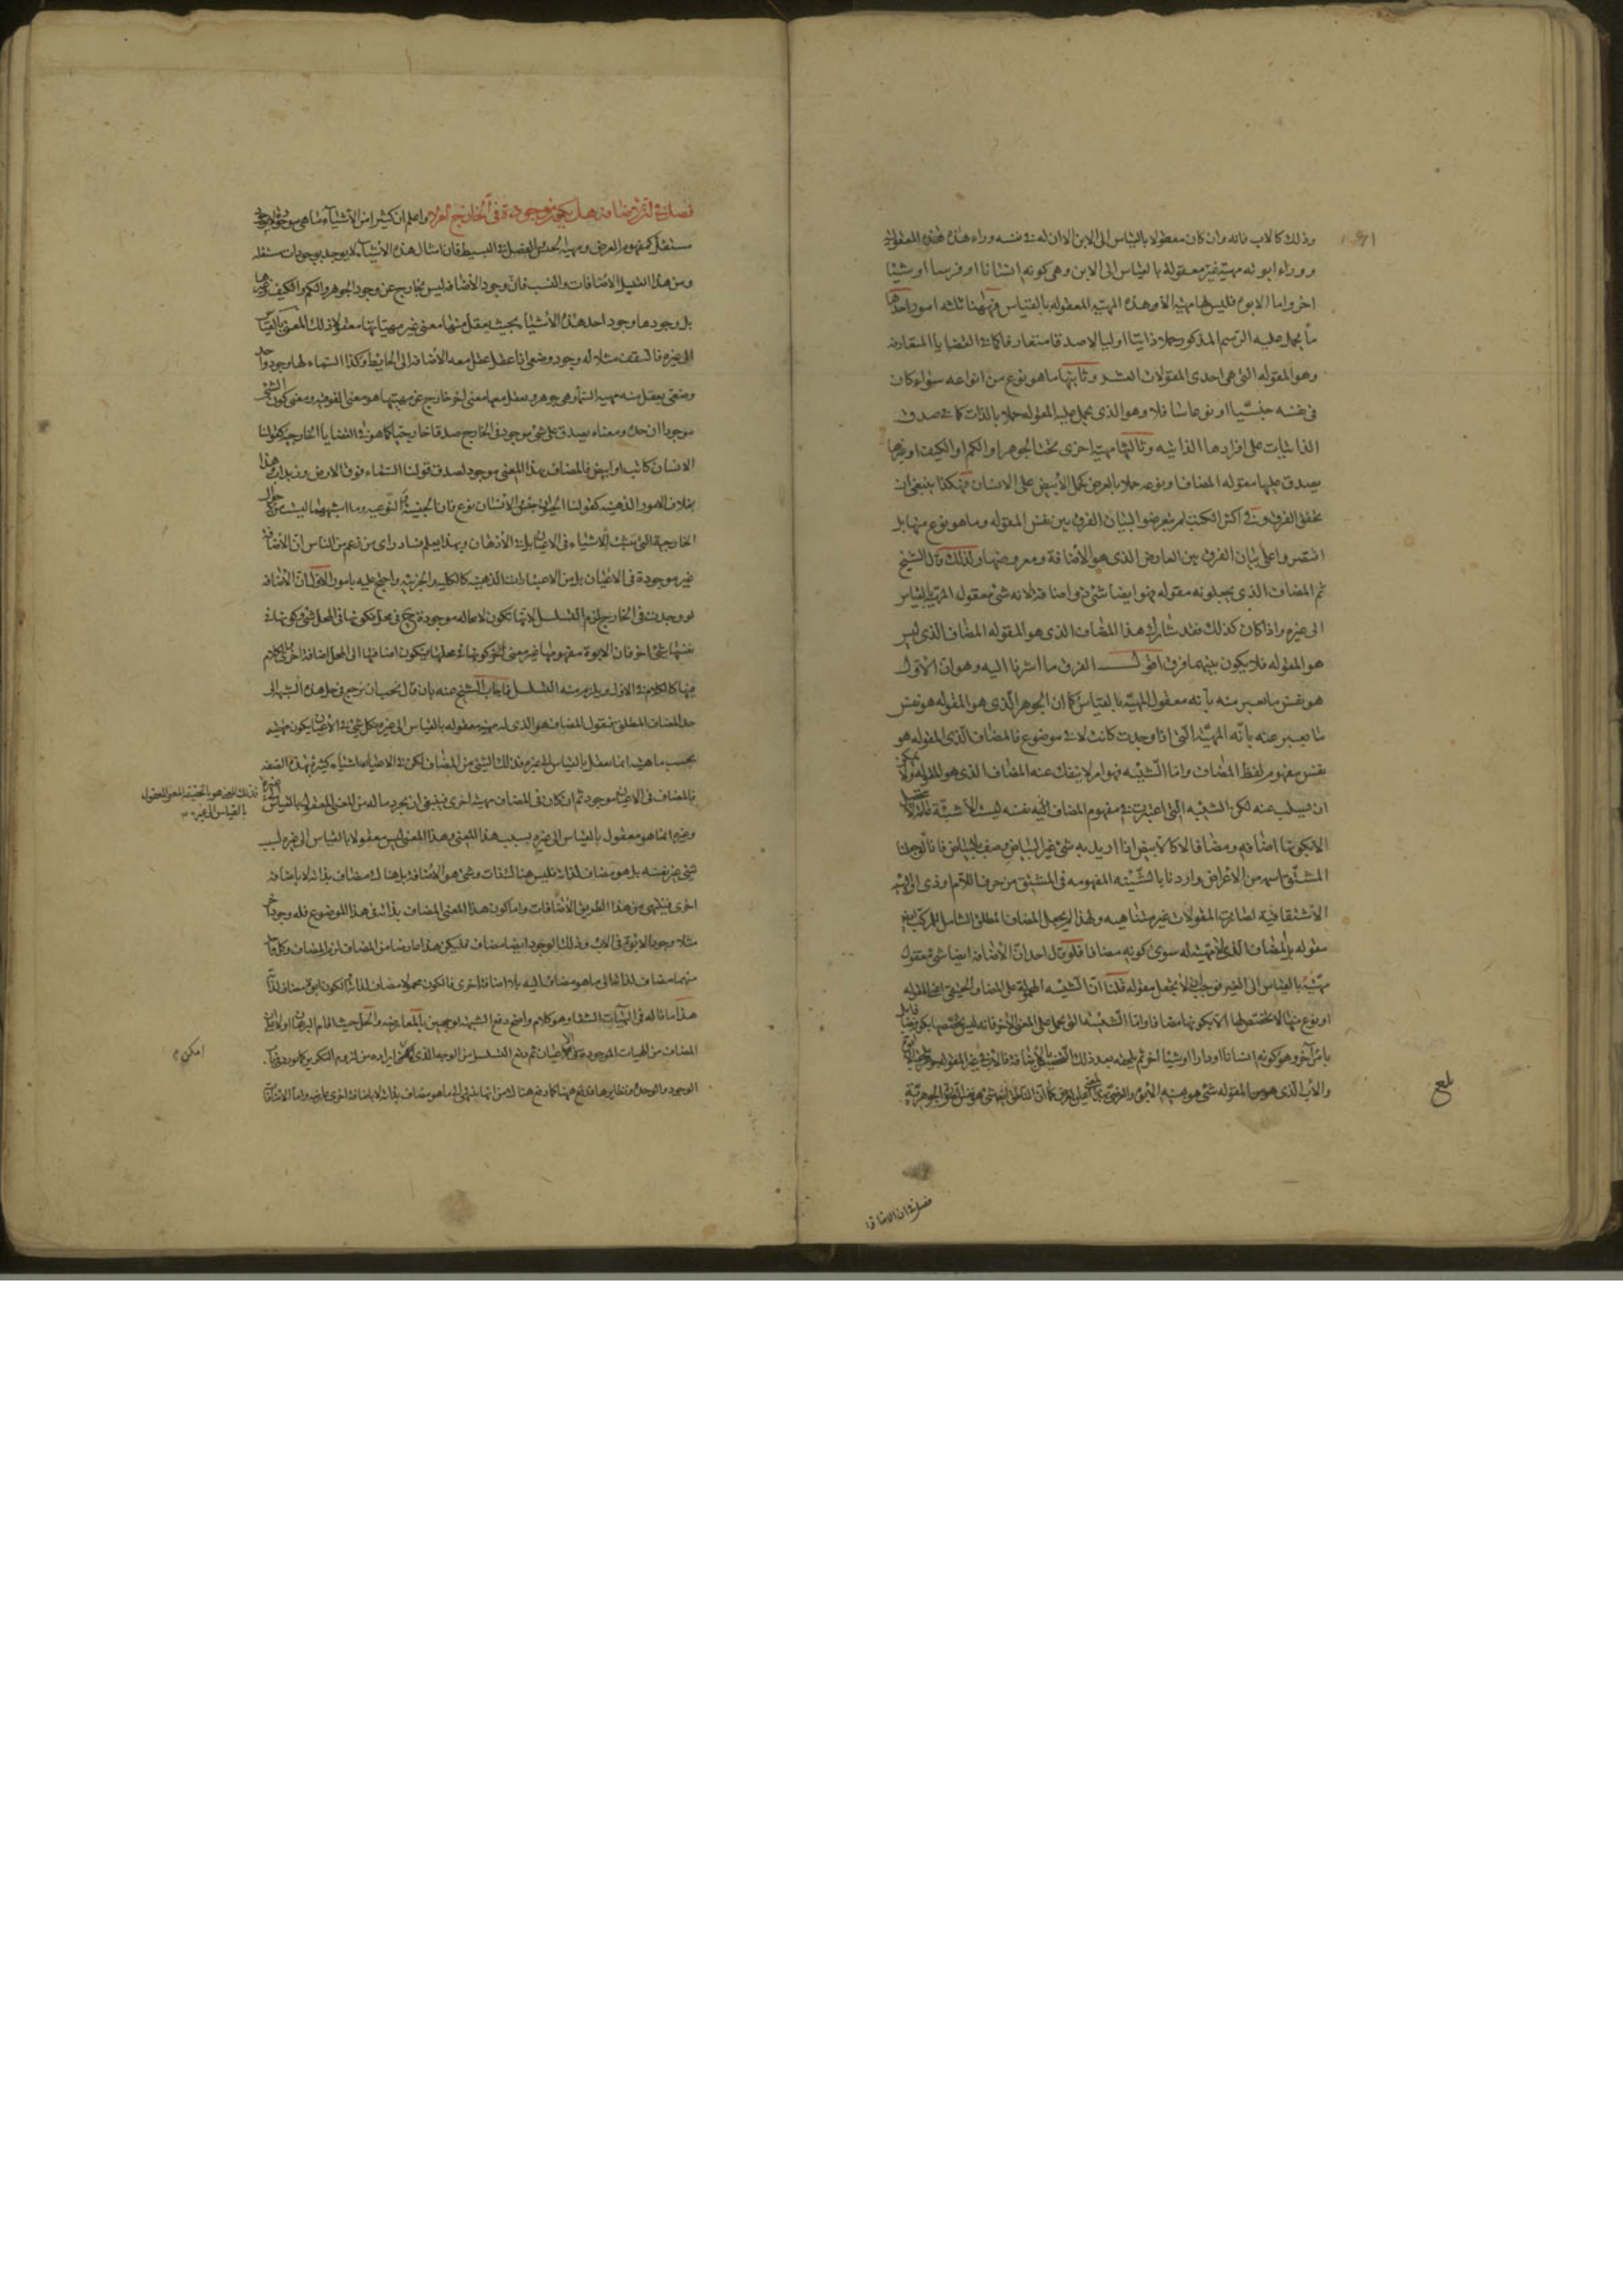 وذلك كالاب فانه وان كان معقولا بالقياس الى الابن الا ان له فى نفسه وراء هذه المعقولية
ووراء ابوته مهية غير معقولة بالقياس الى الابن وهى كونه انسانا او فرسا او شيئا
اخر واما الابوة فليس لها مهية الا وهذه المهية المعقولة بالقياس فههنا ثلثة امور احدها
ما يحمل عليه الرسم المذكور حملا ذاتيا اوليا لا صدقا متعارفا كما فى القضايا المتعارفة
وهو المقولة التى هى احدى المقولات العشر وثانيها ما هو نوع من انواعه سواء كان
فى نفسه جنسيا او نوعا سافلا وهو الذى يحمل عليه المقولة حملا بالذات كما فى صدق
الذاتيات على افرادها الذاتية وثالثها مهية اخرى تحت الجوهر او الكم او الكيف او غيرها
يصدق عليها مقولة المضاف او نوعه حملا بالعرض كحمل الابيض على الانسان فهكذا ينبغى ان
يحقق الفرق وفى اكثر الكتب لم يتعرضوا لبيان الفرق بين نفس المقولة وما هو نوع منها بل
اقتصروا على بيان الفرق بين العارض الذى هو الاضافة ومعروضها ولذلك قال الشيخ
ثم المضاف الذى يجعلونه مقولة فهو ايضا شئ ذو اضافة لانه شئ معقول المهية بالقياس
الى غيره واذا كان كذلك فقد شارك هذا المضاف الذى هو المقولة المضاف الذى ليس
هو المقولة فلا يكون بينهما فرق اقول الفرق ما اشرنا اليه وهو ان الاول
هو نفس ما يعبر عنه بانه معقول المهية بالقياس كما ان الجوهر الذى هو المقولة هو نفس
ما يعبر عنه بانه المهية التى اذا وجدت كانت لا فى موضوع فالمضاف الذى المقولة هو
نفس مفهوم لفظ المضاف واما الشيئية فهو امر لا ينفك عنه المضاف الذى هو المقولة ولا يمكن
ان يسلب عنه لكن الشيئية التى اعتبرت فى مفهوم المضاف ليست الا شيئية
الا بكونها اضافة ومضافا لا كالابيض اذا اريد به شئ غير البياض وصف بالبياض
المشتق اسمه من الاعراض واردنا بالشيئية المفهومة فى المشتق من حرف اللام وذى
الاشتقاقية لصارت المقولات غير متناهية ولهذا لم يجعل المضاف المطلق الشامل للمركب
مقولة بل المضاف الذى لا مهية له سوى كونه مضافا فلو قال احد ان الاضافة ايضا شئ معقول
مهيته بالقياس الى الغير فوجب ان لا يجعل مقولة قلنا ان الشيئية المحمولة على المضاف الحقيقى المقولة
او نوع منها لا تخصص لها الا بكونها مضافا واما الشيئية التى تحمل على المعنى الاخر فانه
بامر اخر وهو كونه انسانا او دارا او شيئا اخر ثم يلحقه بعد ذلك
والاب الذى هو من المقولة شئ هو
بلغ
فصل فى ان الاضافة
فصل فى ان الاضافة هل يكون موجودة فى الخارج ام لا واعلم ان كثيرا من الاشياء ما هى موجودة
مستقل كمفهوم العرض ومهية الجنس والفصل فى البسيط فان امثال هذه الاشياء لا يوجد بوجودات مستقلة
ومن هذا القبيل الاضافات والنسب فان وجود الاضافة ليس بخارج عن وجود الجوهر والكم والكيف وغيرها
بل وجودها وجود احد هذه الاشياء بحيث يعقل منها معنى غير مهياتها معقولا ذلك المعنى بالقياس
الى غيره فالسقف مثلا له وجود وضعى اذا عقل عقل معه الاضافة الى الحايط وكذا السماء لها وجود واحد
وضعى يعقل منه مهية السماء وهى جوهر ويعقل معها معنى اخر خارج عن مهيتها هو معنى الفوقية ومعنى كون الشئ
موجودا ان حده ومعناه يصدق على شئ موجود فى الخارج صدقا خارجيا كما هو فى القضايا الخارجية كقولنا
الانسان كاتب او ابيض فالمضاف بهذا المعنى موجود لصدق قولنا السماء فوق الارض وزيد اب وهذا
بخلاف الامور الذهنية كقولنا الحيوان جنس والانسان نوع فان الجنسية والنوعية وما اشبههما ليست من الاحوال
الخارجية التى تثبت للاشياء فى الاعيان بل فى الاذهان وبهذا يعلم فساد راى من زعم من الناس ان الاضافة
غير موجودة فى الاعيان بل من الاعتبارات الذهنية كالكلية والجزئية واحتج عليه بامور الاول ان الاضافة
لو وجدت فى الخارج لزم التسلسل لانها تكون لا محالة موجودة ح فى محل فكونها فى المحل شئ وكونها فى
نفسها شئ اخر فان الابوة مفهومها غير معنى كونها فى محلها فيكون اضافتها الى المحل اضافة اخرى والكلام
فيها كالكلام فى الاول ويلزم منه التسلسل فاجاب الشيخ عنه بان قال يجب ان نرجع فى حل هذه الشبهة الى
حد المضاف المطلق فنقول المضاف هو الذى له مهية معقولة بالقياس الى غيره فكل شئ فى الاعيان يكون مهيته
بحسب ما هية انما تعقل بالقياس الى غيره فذلك الشئ من المضاف لكن فى الاعيان اشياء كثيرة بهذه الصفة
فالمضاف فى الاعيان موجود ثم ان كان فى المضاف مهية اخرى فينبغى ان يجرد ماله من المعنى المعقول بالقياس
فذلك المعنى هو بالحقيقة المعنى المعقول
بالقياس الى غيره
وغيره انما هو معقول بالقياس الى غيره بسبب هذا المعنى وهذا المعنى ليس معقولا بالقياس الى غيره لسبب
شئ غير نفسه بل هو مضاف لذاته فليس هناك ذات وشئ هو الاضافة بل هناك مضاف بذاته لا باضافة
اخرى فينتهى من هذا الطريق الاضافات واما كون هذا المعنى المضاف بذاته فى هذا الموضوع فله وجود اخر
مثلا وجود الابوة فى الاب وذلك الوجود ايضا مضاف فليكن هذا عارضا من المضاف لزم المضاف وكل واحد
منهما مضاف لذاته الى ما هو مضاف اليه بلا اضافة اخرى فالكون محمولا مضاف لذاته والكون ابوة مضاف لذاته
هذا ما قاله فى الهيات الشفا وهو كلام واضح دفع الشبهة بوجهين بالمعارضة والحل حيث اقام البرهان اولا على ان
المضاف من المهيات الموجودة فى الاعيان ثم دفع التسلسل من الوجه الذى ايراده من لزوم التكرر
امكن
الوجود والوحدة ونظايرها فدفع ههنا كما دفع هناك من انها ينتهى الى ما هو مضاف بذاته لا باضافة اخرى عارضة واما